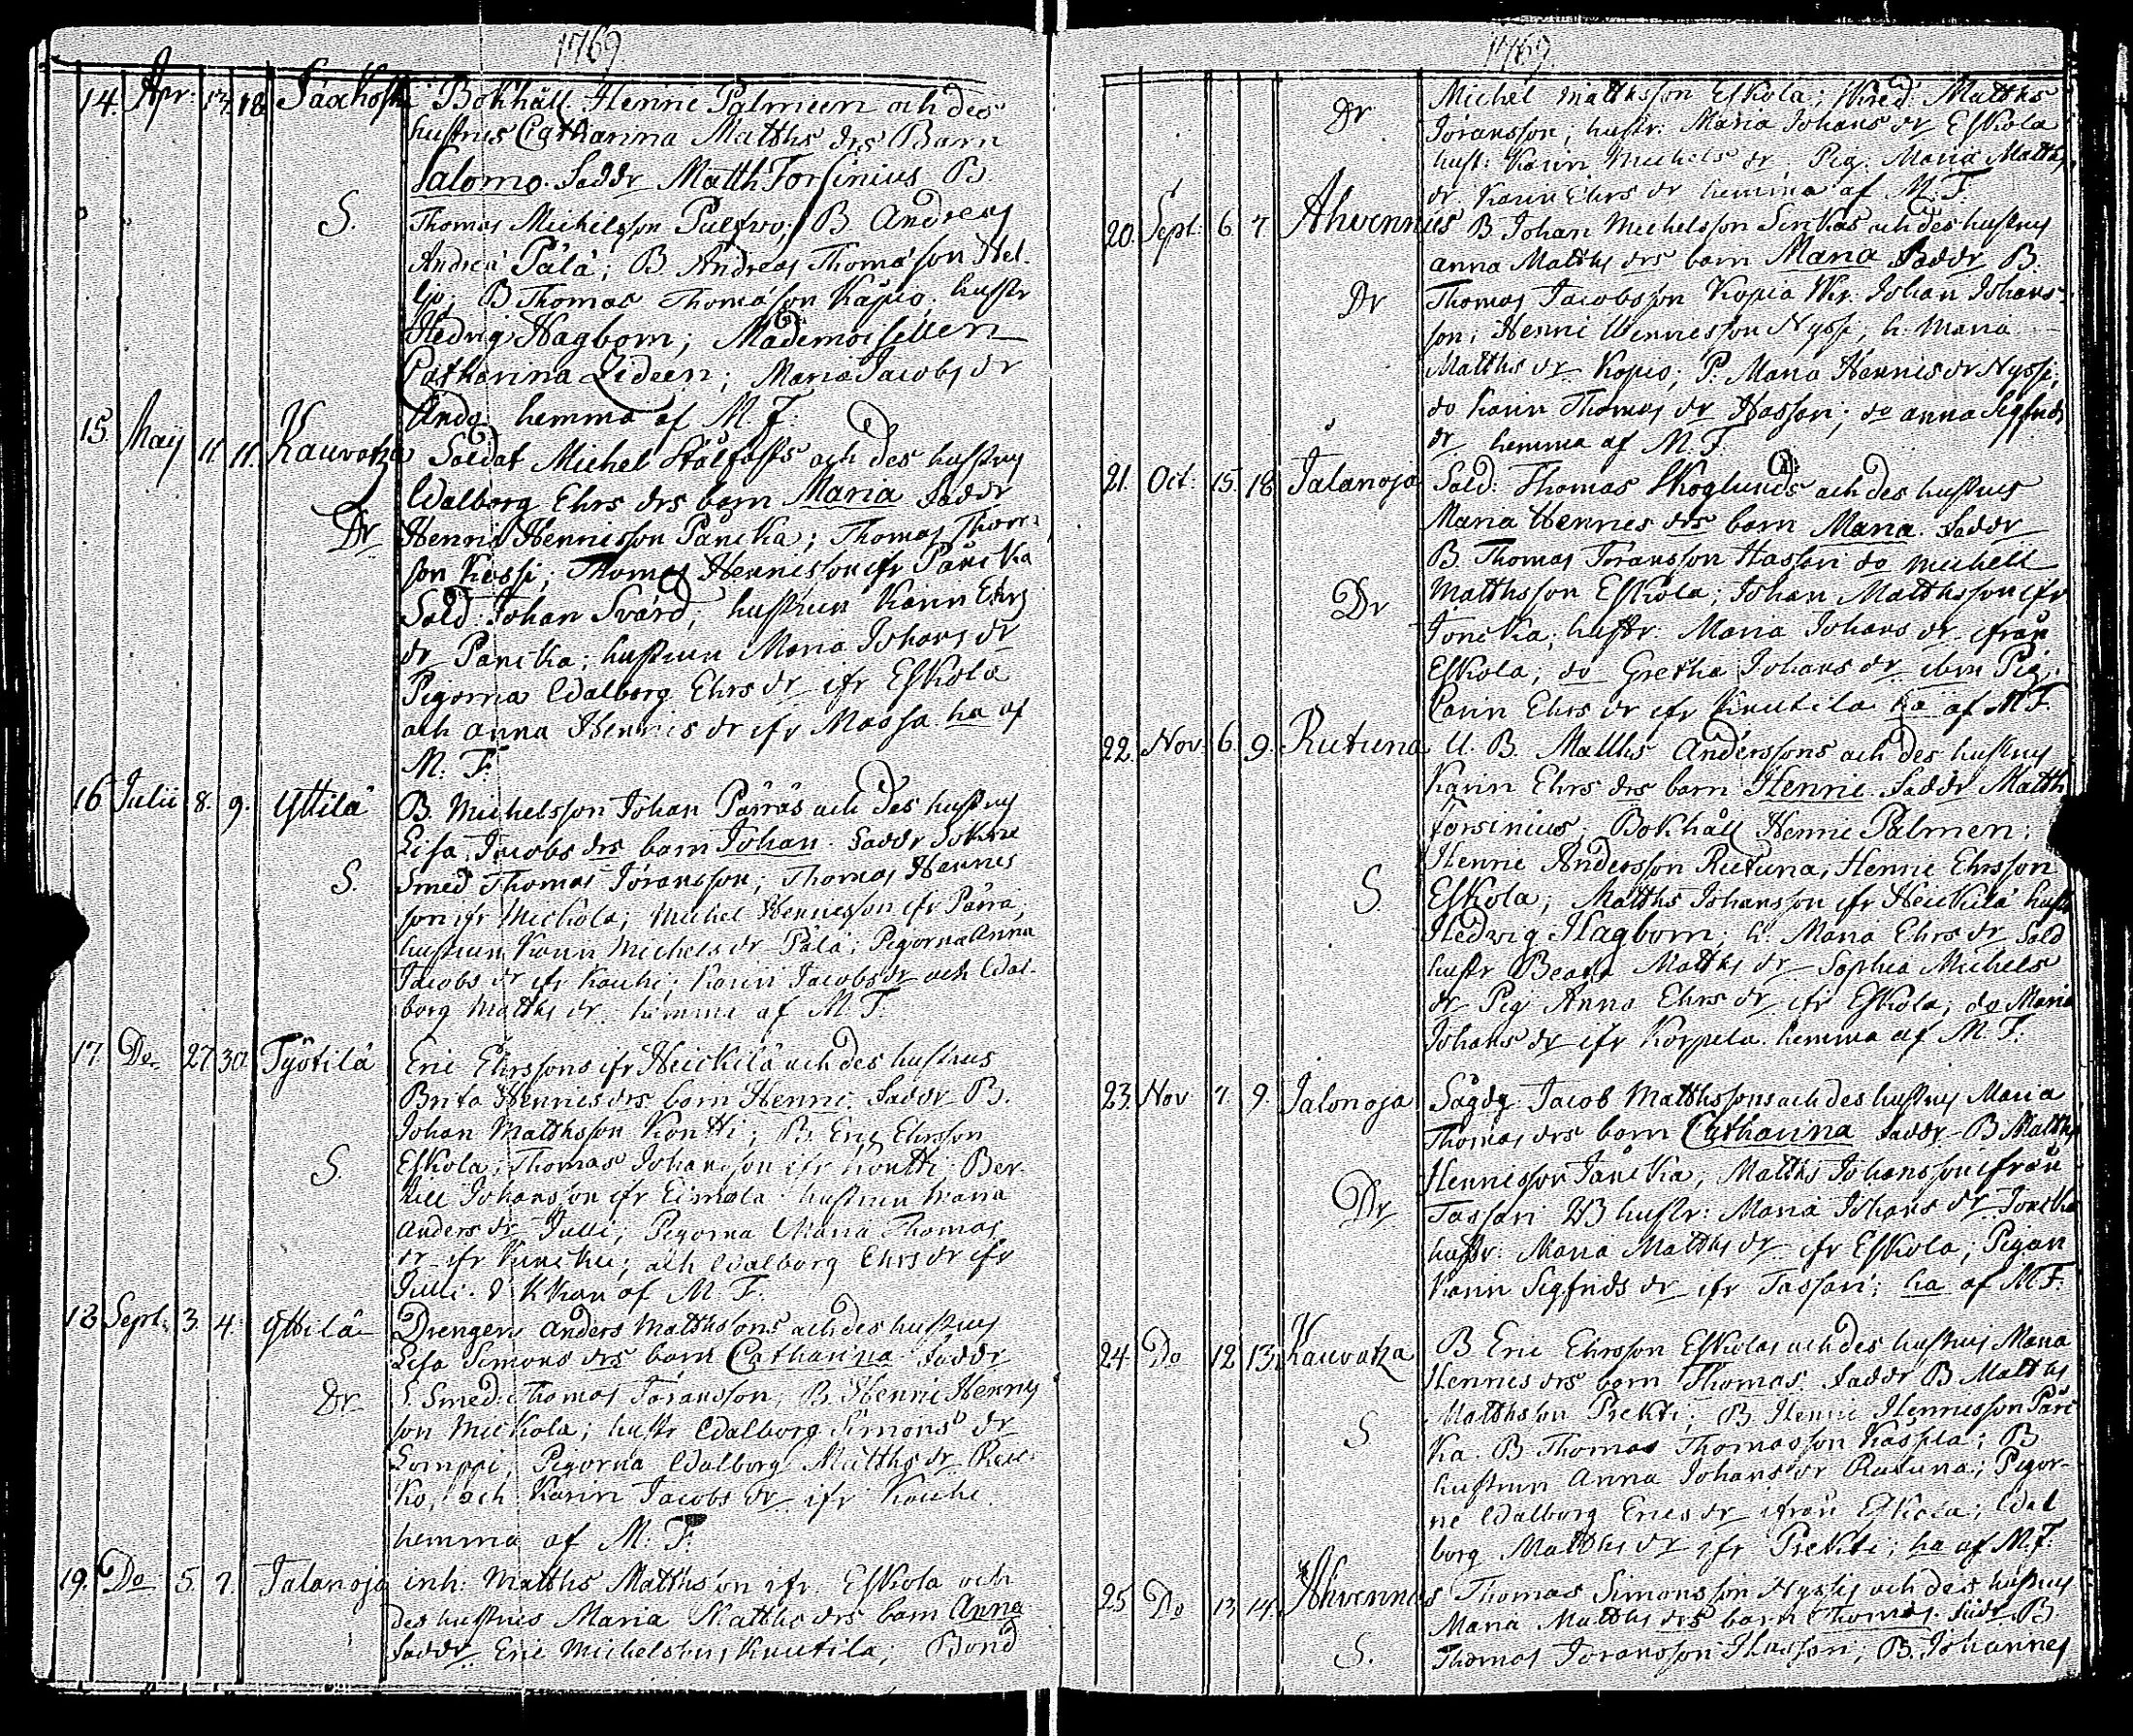 1769
14. Apr: 17. 18 Saxkoski Bokhåll Henric Palmien och des
hustrus Catharina Matths drs Barn
Salomo. Faddr Matth Forsinius B
S. Thomas Michelsson B Andreas
Andreä Pälä; B Andreas Thomæson Hel-
B Thomas Thomæson Käpio. hustr
Hedvig Hagborn; Mademoisellen
Catharina Lideen; Maria Jacobs dr
hemma af M. F.
15. Maij 11 11. Kauvatza Soldat Michel Stålfasts och des hustrus
Walborg Ehrs drs barn Maria Faddr
Dr Henric Henricsson Päncka; Thomas Thom
son Kossi; Thomas Henricsson ifr Päncka
Sold: Johan Svärd; hustrun Karin Ehrs
dr Pancka; hustrun Maria Johans dr
Pigorna Walborg Ehrs dr ifr Eskola
och Anna Henrics dr ifr Massa ha af
M. F.
16 Julii 8. 9. Yttilä B. Michelsson Johan Pärräs och des hustrus
Lisa Jacobs drs barn Johan. Faddr Sokne
S. Smed Thomas Joransson; Thomas Henrics
son ifr Mickola; Michel Henricsson ifr Pärrä;
hustrun Karin Michels dr Pälä; Pigorna Anna
Jacobs dr ifr Kauhi; Karin Jacobs dr och Wal-
borg Matths dr hemma af M. F.
17. Do 27 30 Työtilä Eric Ehrssons ifr Heickilä och des hustrus
Brita Henrics drs barn Henric. Faddr B.
Johan Matthsson Kontti; B. Eric Ehrsson
S. Eskola; Thomas Johansson ifr Kontti Ber-
till Johansson ifr Eimola hustrun Maria
Anders dr Julli; Pigorna Maria Thomas
dr ifr och Walborg Ehrs dr ifr
Julli. af M. F.
18 Sept. 3. 4. Yttilä Drengen Anders Matthssons och des hustrus
Lisa Simons drs barn Catharina Faddr
Dr S. Smed: Thomas Joransson, B. Henric Henrics
son Mickola; hustr Walborg Simons dr
Lomppi; Pigorna Walborg Matths dr
och Karin Jacobs dr ifr Kauhi
hemma af M. F.
19. Do 5. 7. Jalanoja inh: Matths Matthson ifr Eskola och
des hustrus Maria Matths drs barn Anna
Faddr Eric Michelsons Knutila; Bond
1769
Dr Michel Matthsson Eskola; Matths
Joransson; hustr: Maria Johans dr Eskola
hust: Karin Michels dr Pig. Maria Matths
dr. Karin Ehrs dr hemma af M. F.
20. Sept: 6. 7 Ahvennus B Johan Michelsson och des hustrus
Anna Matths drs barn Maria Faddr B.
Dr Thomas Jacobsson Kopio Johan Johans-
son; Henric Nyssi; h. Maria
Matths dr Kopio; P. Maria Henrics dr Nyssi;
do Karin Thomas dr Hassari; do Anna Sigfrids
dr hemma af M. F.
21. Oct: 15. 18 Jalanoja Sold: Thomas Skoglunds och des hustrus
Maria Henrics drs barn Maria. Faddr
B. Thomas Joransson Hassari do Michell
Dr Matthsson Eskola; Johan Matthsson ifr
hustr: Maria Johans dr ifrån
Eskola; do Gretha Johans dr ibm Pig:
Carin Ehrs dr ifr Knutila ha af M F.
22. Nov. 6. 9. Rutuna U. B. Matths Anderssons och des hustrus
Karin Ehrs drs barn Henric. Faddr Matth
Forsinius; Bokhåll Henric Palmen;
Henric Andersson Rutuna, Henric Ehrsson
S. Eskola; Matths Johansson ifr Heickilä hust
Hedvig Hagborn; h. Maria Ehrs dr Sold
hustr Beata Matths dr Sophia Michels
dr Pig Anna Ehrs dr ifr Eskola; do Maria
Johans dr ifr Korpela. hemma af M. F.
23. Nov 7. 9. Jalonoja Sågdr Jacob Matthssons och des hustrus Maria
Thomas drs barn Catharina Faddr B Matths
Henricsson Matths Johansson ifrån
Dr Tassari B hustr: Maria Johans dr
hustr: Maria Matths dr ifr Eskola; Pigan
Karin Sigfrids dr ifr Tassari; ha af M F.
24 Do 12 13. Kauvatza B Eric Ehrsson Eskolas och des hustrus Maria
Henrics drs barn Thomas. Faddr B Matths
S Matthsson Prekti; B Henric Henricsson Pän
ka. B Thomas Thomasson Käspila; B
hustrun Anna Johans dr Rutuna; Pigor-
ne Walborg Erics dr ifrån Eskola; Wal
borg Matths dr ifr Prekti; ha af M. F.
25 Do 13 14. Ahvennus Thomas Simonsson Nyssis och des hustrus
Maria Matths drs barn Thomas. Faddr B
S. Thomas Joransson Hassari; B. Johannes